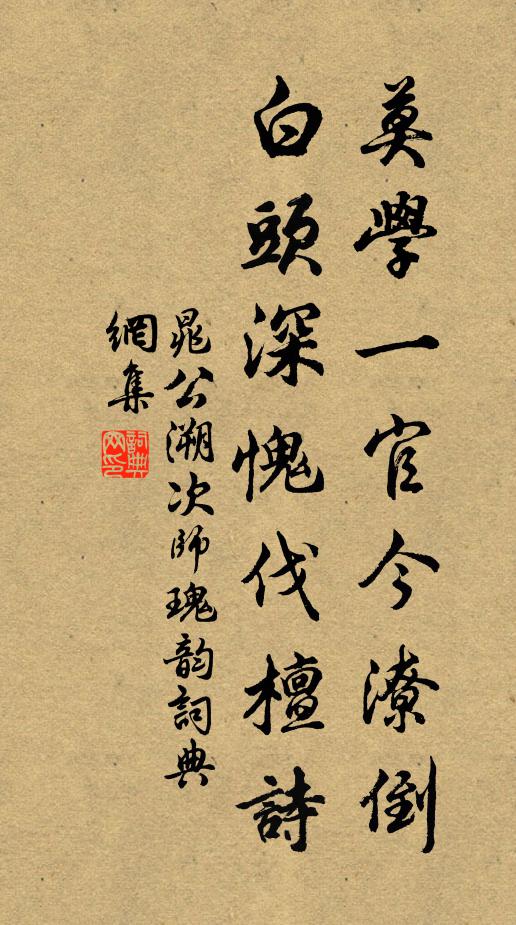 莫學一官今潦倒
白頭深愧伐檀詩
晁公溯次師瑰韵詞典
網集
詞典
网印